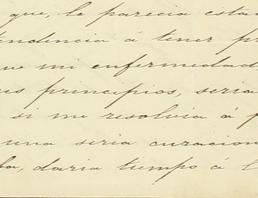 que, le parecia esta
tendencia á tener pr
ue mi enfermedad
us principios, seria
si me resolvia á p
una seria curacion
daria tiempo á l